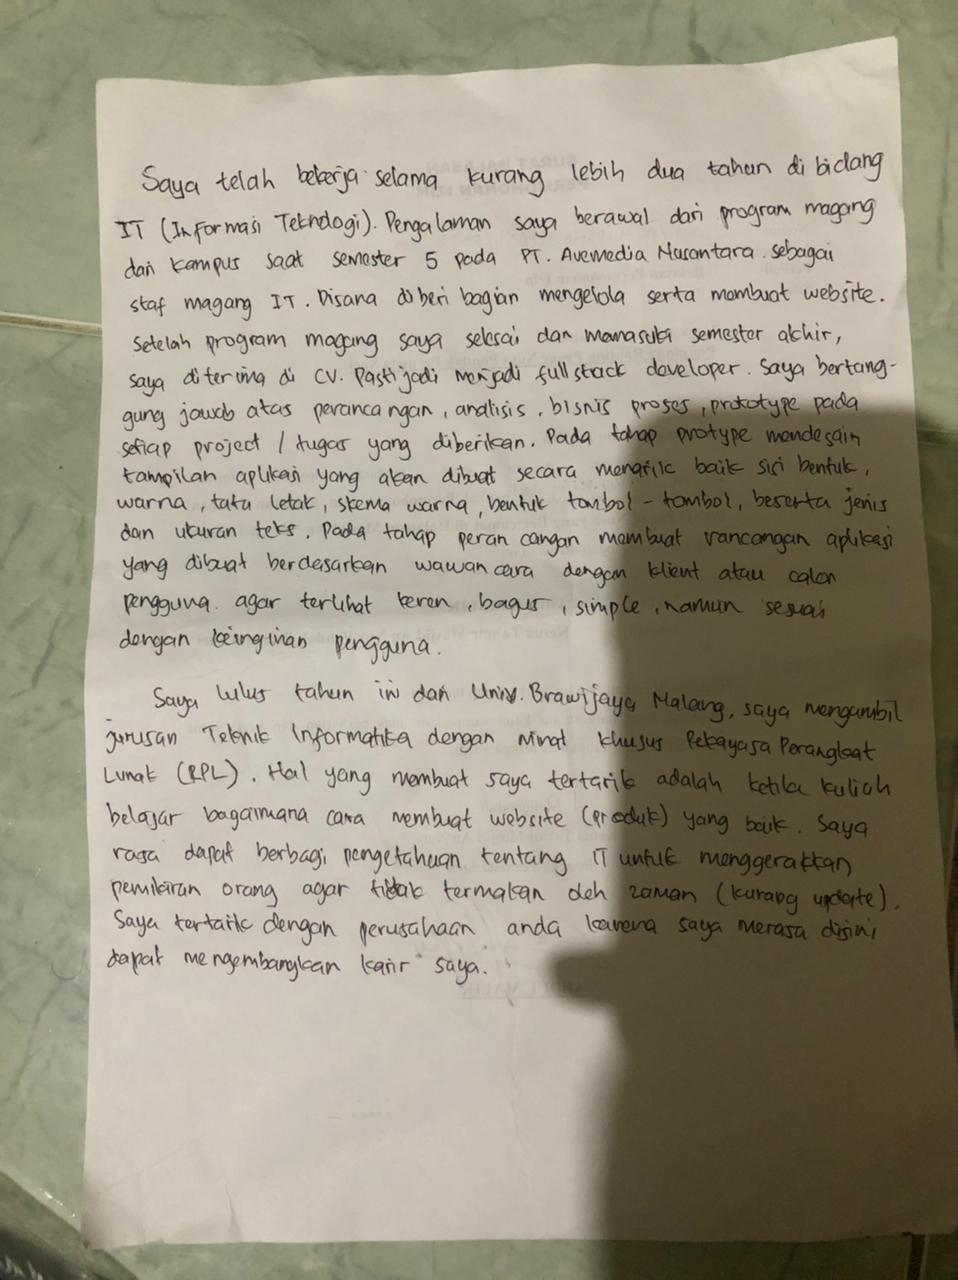 Saya telah bekerja selama kurang lebih dua tahun di bidang
IT (Informasi Teknologi). Pengalaman saya berawal dari program magang
dari kampus saat semester 5 pada PT. Avemedia Nusantara sebagai
staf magang IT. Disana diberi bagian mengelola serta membuat website.
Setelah program magang saya selesai dan memasuki semester akhir,
saya diterima di CV. Pastijadi menjadi full stack developer. Saya bertang-
gung jawab atas perancangan, analisis, bisnis proses, prototype pada
setiap project / tugas yang diberikan. Pada tahap protype mendesain
tampilan aplikasi yang akan dibuat secara menarik baik sisi bentuk,
warna, tata letak, skema warna, bentuk tombol - tombol, beserta jenis
dan ukuran teks. Pada tahap perancangan membuat rancangan aplikasi
yang dibuat berdasarkan wawancara dengan klient atau calon
pengguna. agar terlihat keren, bagus, simple, namun sesuai
dengan keinginan pengguna.
Saya lulus tahun ini dari Univ. Brawijaya Malang, saya mengambil
jurusan Teknik Informatika dengan minat khusus Rekayasa Perangkat
Lunak (RPL). Hal yang membuat saya tertarik adalah ketika kuliah
belajar bagaimana cara membuat website (produk) yang baik. Saya
rasa dapat berbagi pengetahuan tentang IT untuk menggerakkan
pemikiran orang agar tidak termakan oleh zaman (kurang update).
Saya tertarik dengan perusahaan anda karena saya merasa disini
dapat mengembangkan karir saya.